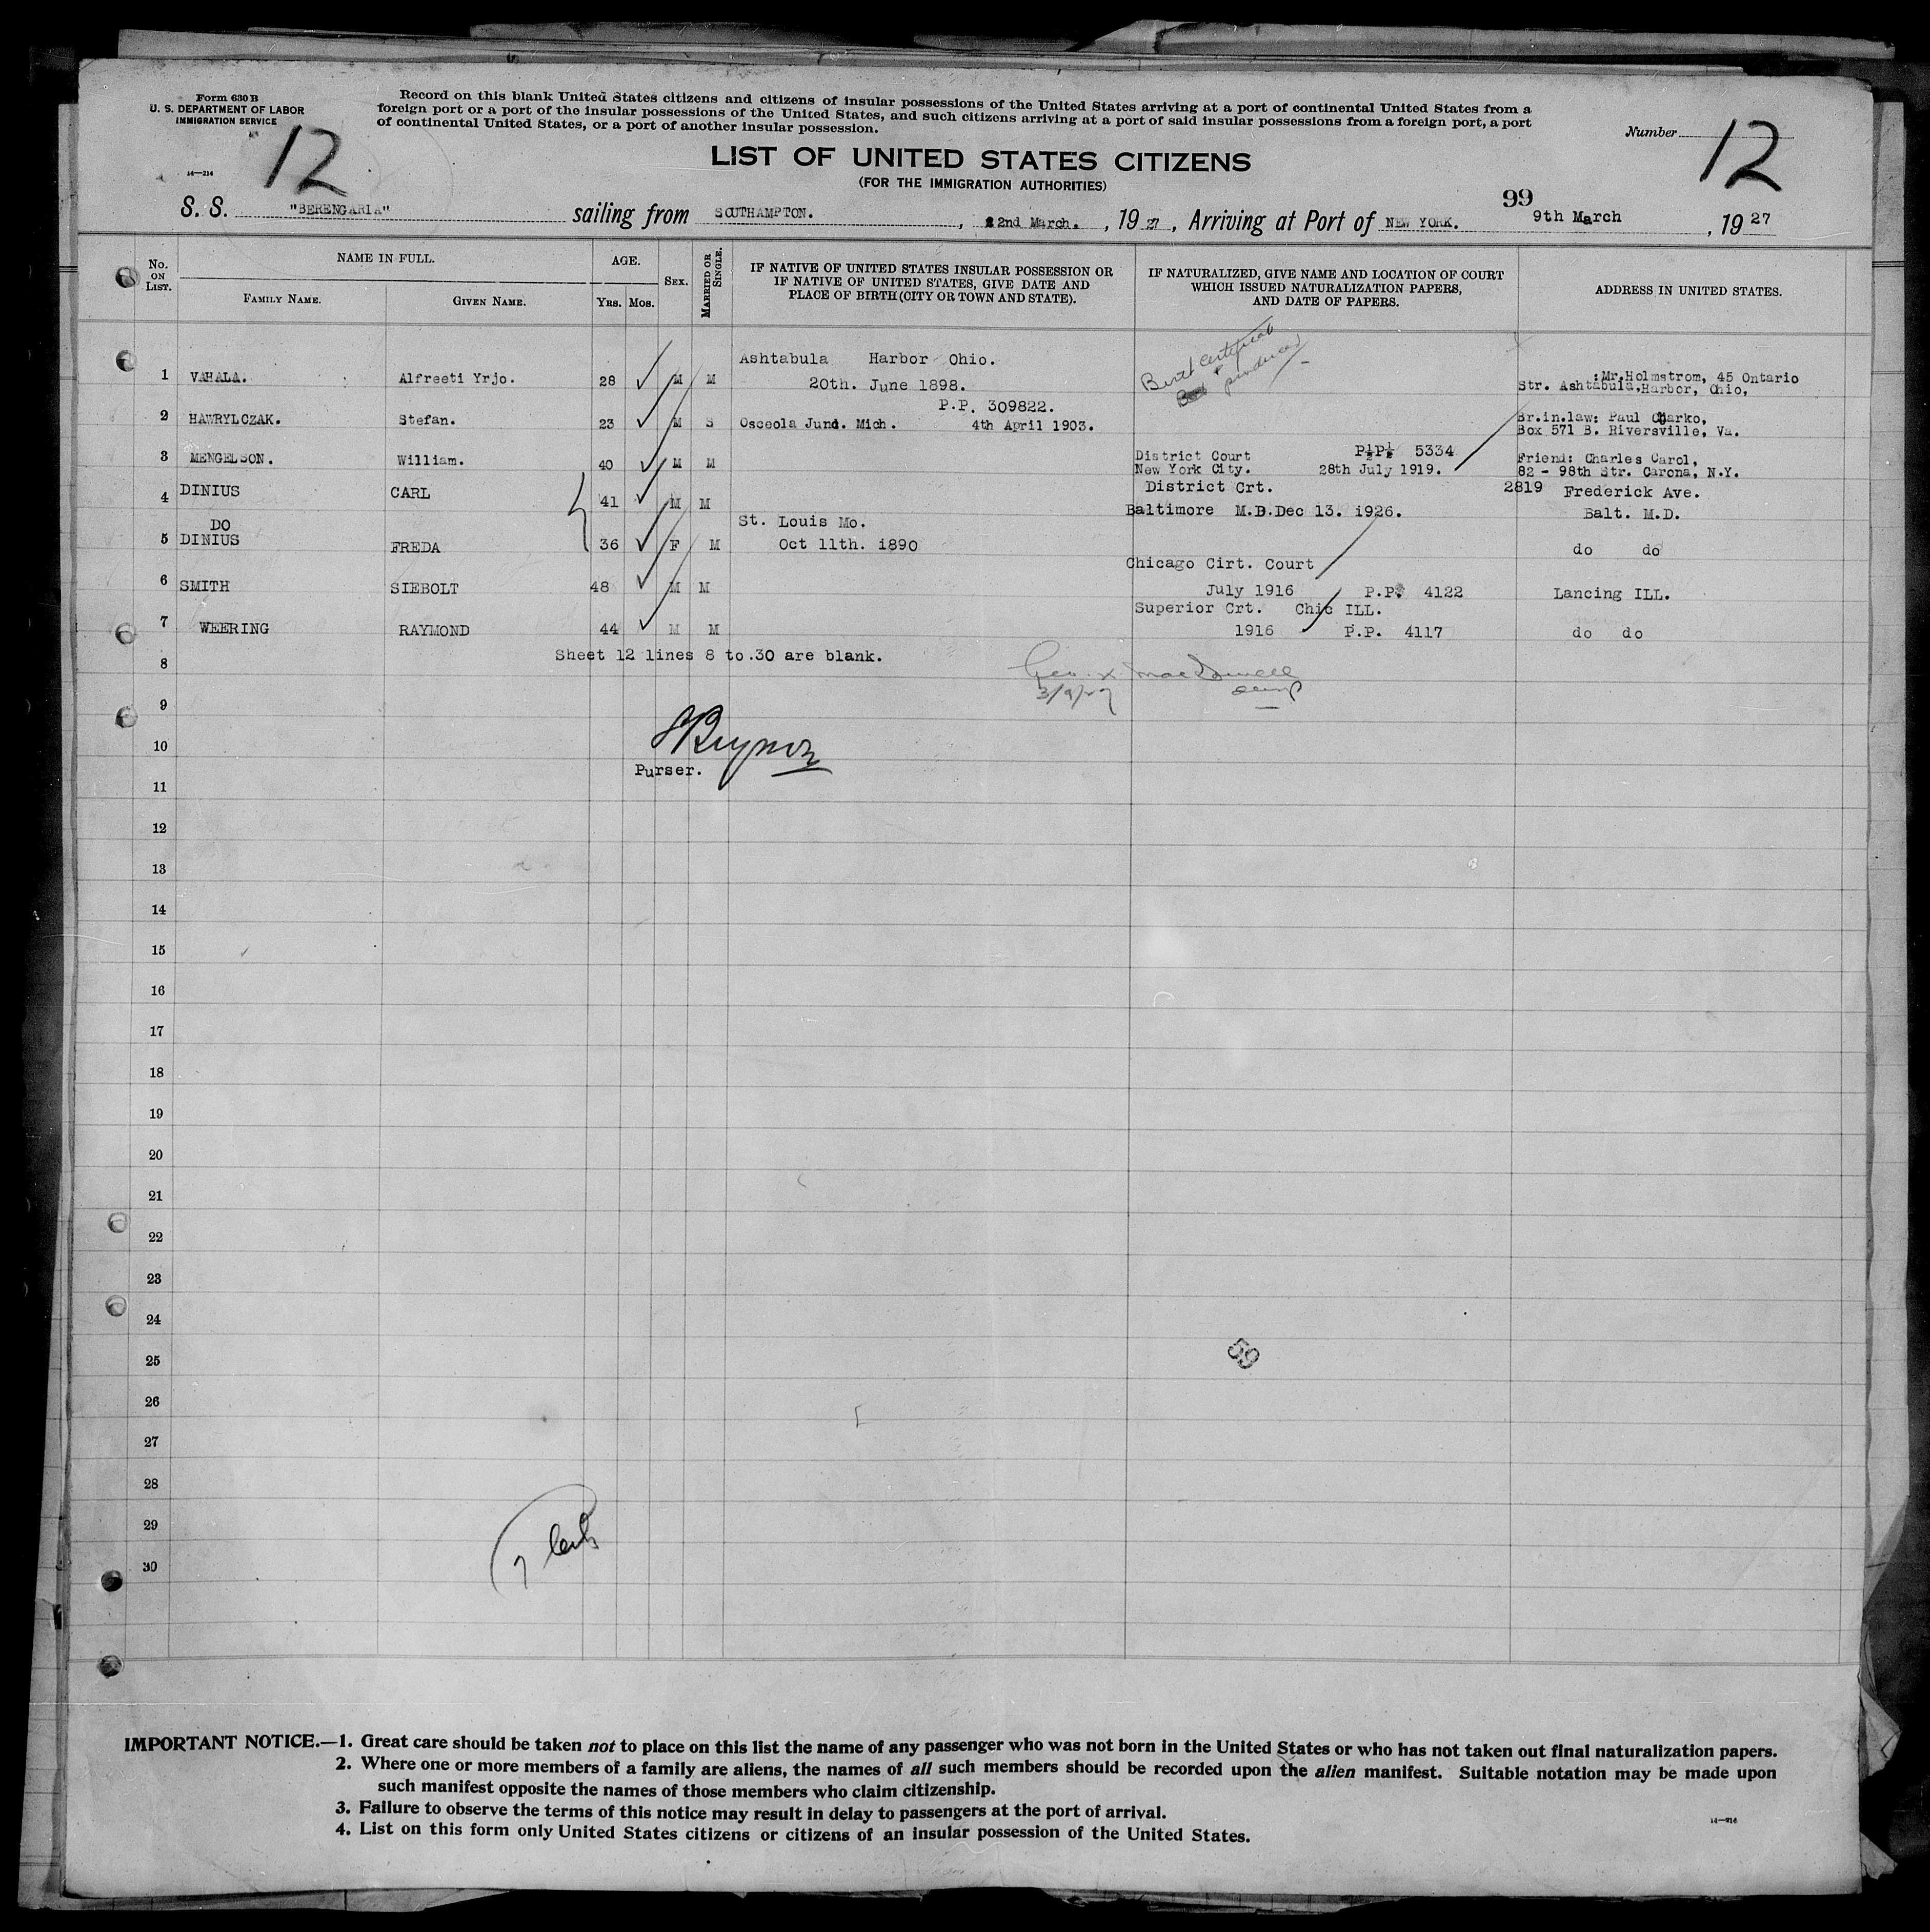 Form 630 B
U. S. DEPARTMENT OF LABOR
IMMIGRATION SERVICE
14—214
12
Record on this blank United States citizens and citizens of insular possessions of the United States arriving at a port of continental United States from a
foreign port or a port of the insular possessions of the United States, and such citizens arriving at a port of said insular possessions from a foreign port, a port
of continental United States, or a port of another insular possession.
Number 12
LIST OF UNITED STATES CITIZENS
(FOR THE IMMIGRATION AUTHORITIES)
99
S. S. "BERENGARIA" sailing from SOUTHAMPTON. , 22nd March. , 19 27 , Arriving at Port of NEW YORK. 9th March , 19 27
No. ON LIST.
NAME IN FULL.
FAMILY NAME. GIVEN NAME.
AGE.
YRS. MOS.
SEX.
MARRIED OR SINGLE.
IF NATIVE OF UNITED STATES INSULAR POSSESSION OR
IF NATIVE OF UNITED STATES, GIVE DATE AND
PLACE OF BIRTH (CITY OR TOWN AND STATE).
IF NATURALIZED, GIVE NAME AND LOCATION OF COURT
WHICH ISSUED NATURALIZATION PAPERS,
AND DATE OF PAPERS.
ADDRESS IN UNITED STATES.
Ashtabula Harbor Ohio. Birth certificate
1 VAHALA. Alfreeti Yrjo. 28 M M 20th. June 1898. produced :Mr.Holmstrom, 45 Ontario
Str. Ashtabula.Harbor, Ohio,
P.P. 309822.
2 HAWRYLCZAK. Stefan. 23 M S Osceola Junc. Mich. 4th April 1903. Br.in.law: Paul Charko,
Box 571 B. Riversville, Va.
3 MENGELSON. William. 40 M M District Court P½P½ 5334 Friend: Charles Carol,
New York City. 28th July 1919. 82 - 98th Str. Carona, N.Y.
4 DINIUS CARL 41 M M District Crt. 2819 Frederick Ave.
Baltimore M.D.Dec 13. 1926. Balt. M.D.
DO St. Louis Mo.
5 DINIUS FREDA 36 F M Oct 11th. 1890 do do
Chicago Cirt. Court
6 SMITH SIEBOLT 48 M M July 1916 P.P. 4122 Lancing ILL.
Superior Crt. Chic ILL.
7 WEERING RAYMOND 44 M M 1916 P.P. 4117 do do
Sheet 12 lines 8 to.30 are blank.
8
3/9/27
9
10
Purser.
11
12
13
14
15
16
17
18
19
20
21
22
23
24
59
25
26
27
28
29
30
7
IMPORTANT NOTICE.—1. Great care should be taken not to place on this list the name of any passenger who was not born in the United States or who has not taken out final naturalization papers.
2. Where one or more members of a family are aliens, the names of all such members should be recorded upon the alien manifest. Suitable notation may be made upon
such manifest opposite the names of those members who claim citizenship.
3. Failure to observe the terms of this notice may result in delay to passengers at the port of arrival.
4. List on this form only United States citizens or citizens of an insular possession of the United States.